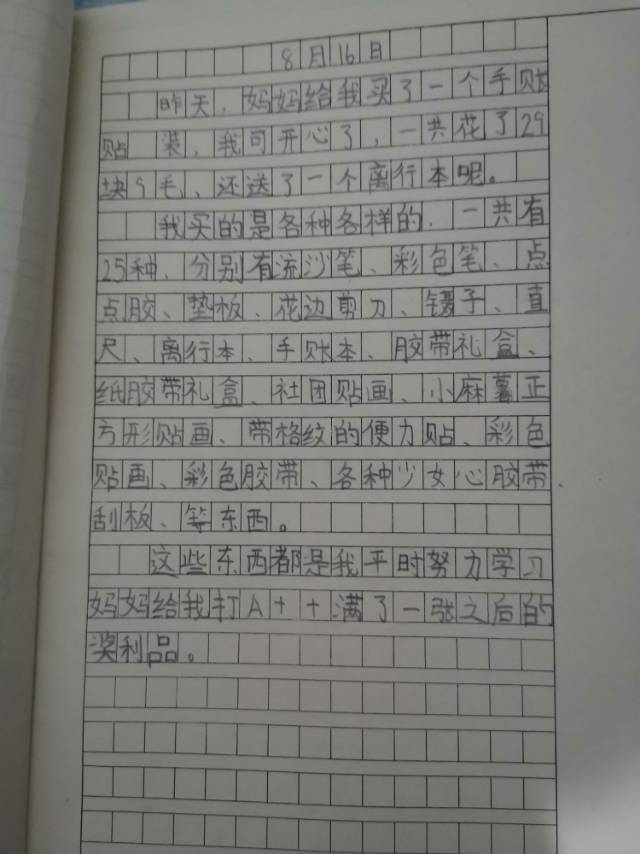 8月16日
昨天，妈妈给我买了一个手账
贴 装，我可开心了，一共花了29
块9毛、还送了一个离行本呢。
我买的是各种各样的、一共有
25种、分别有流沙笔、彩色笔、点
点胶、垫板、花边剪刀、镊子、直
尺、离行本、手账本、胶带礼盒、
纸胶带礼盒、社团贴画、小麻薯正
方形贴画、带格纹的便力贴、彩色
贴画、彩色胶带、各种少女心胶带、
刮板、等东西。
这些东西都是我平时努力学习
妈妈给我打A++满了一张之后的
奖利品。